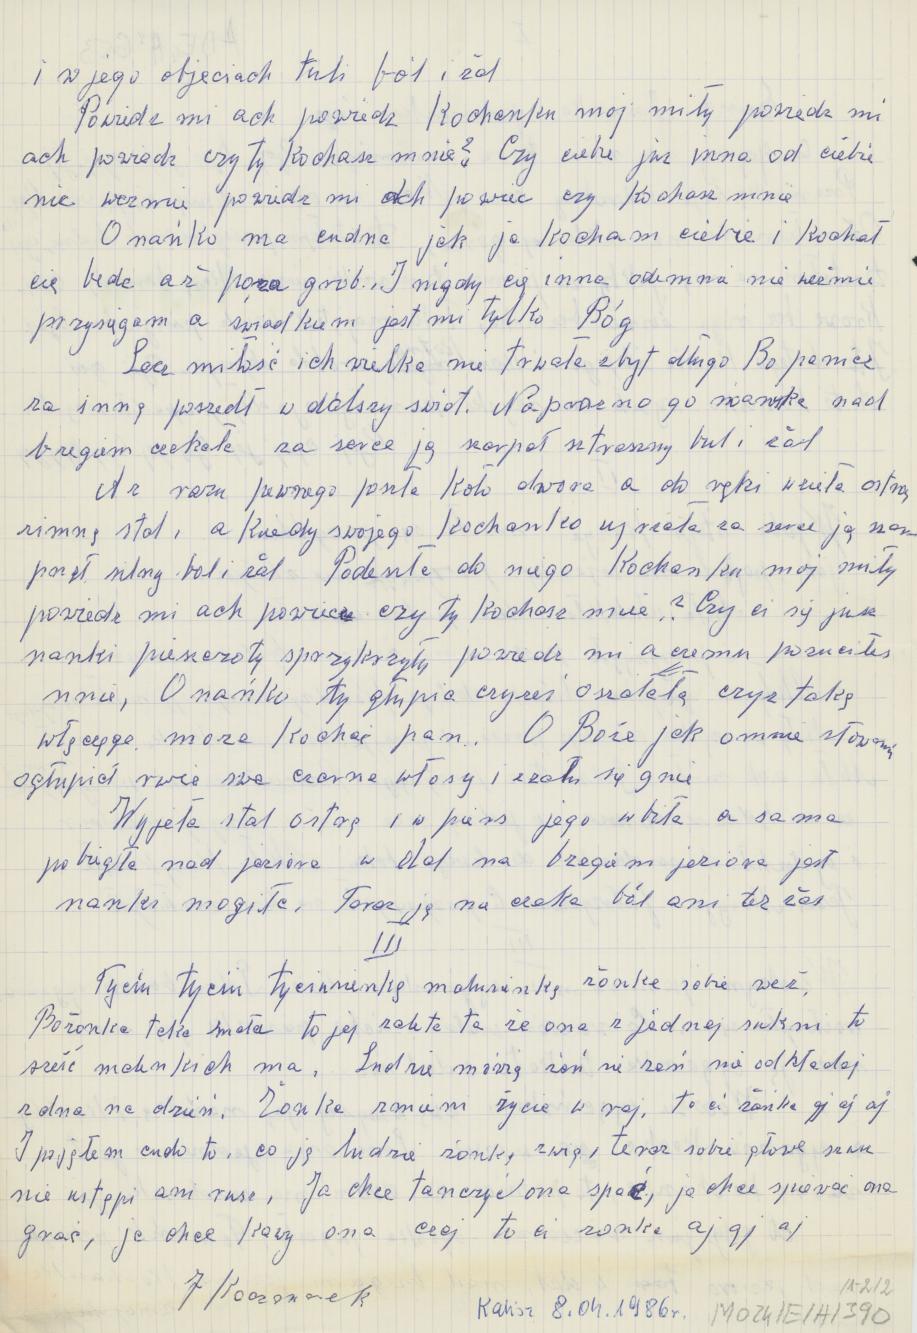 i w jego objęciach tuli ból i żal
Powiedz mi ach powiedz Kochanku moj miły powiedz mi
ach powiedz czy ty Kochasz mnie? Czy ciebie juz inna od ciebie
nie wezmie powiedz mi ach powiec czy Kochasz mnie
O nańko ma cudna jak ja Kocham ciebie i Kochał
cię bede aż poza grób. I nigdy cię inna odemnie nie weźmie
przysięgam a świadkiem jest mi tylko Bóg
Lecz miłość ich wielka nie trwała zbyt długo Bo panicz
za inną poszedł w dalszy swiat. Naprozno go nad
bregiem czekała za serce ją szarpał strraszny bul i żal
Az razu pewnego poszła koło dwora a do ręki wzieła ostrą
zimną stal, a kiedy swojego kochanko ujrzała za serce ją szar
pnął silny bol i żal Podeszła do niego Kochanku moj miły
powiedz mi ach powiec czy ty kochasz mnie? Czy ci się juz
nanki pieszczoty sprzykrzyły powiedz mi a czemu porzuciłes
mnie, O nańko ty głupia czyześ oszalała czyz taką
włęczęge moze Kochać pan. O Boże jak omnie
ogłupiał rwie swe czarne włosy i szatu się gnie
Wyjeła stal ostrą i w piers jego wbiła a sama
pobiegła nad jeziora w dal na brzegiem jeziora jest
nanki mogiłe. Teraz ją na czeka ból ani tez żas
III
Tyciu tyciu tyciusienką malusienką żonke sobie weź,
Bo żonka taka mała to jej zaleta ta że ona z jednej sukni to
sześć malenkich ma. Ludzie mówią żeń sie żeń nie odkładaj
z dna na dzień. Żonka zmieni życie w raj, to ci żonka aj aj aj
I pojąłem cudo to, co ją ludzie żonką zwią, teraz sobie głowe
nie ustąpi ani rusz, Ja chce tanczyć ona spać, ja chce spiewać ona
grać, ja chce kawy ona czaj to ci zonka aj aj aj
Kalisz 8.04.1986r.
11-2/2
MOZK/E/A/390